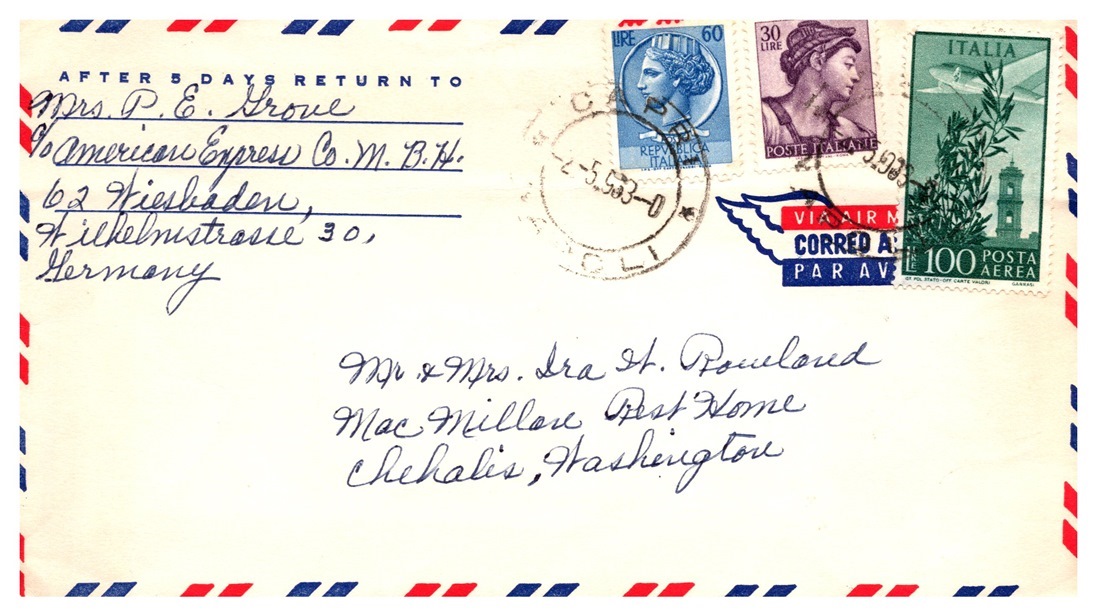 AFTER 5 DAYS RETURN TO
Mrs. P. E. Grove
c/o American Express Co. M. B. H.
62 Wiesbaden,
Wilhelmstrasse 30,
Germany
LIRE 60
REPUBBLICA
ITALIANA
30
LIRE
POSTE ITALIANE
ITALIA
LIRE 100 POSTA
AEREA
IST. POL. STATO-OFF. CARTE VALORI
CAPRI
2-5.63-0
NAPOLI
VIA AIR M
CORREO A
PAR AV
Mr & Mrs. Ira H. Rowland
Mac Millan Rest Home
Chehalis, Washington